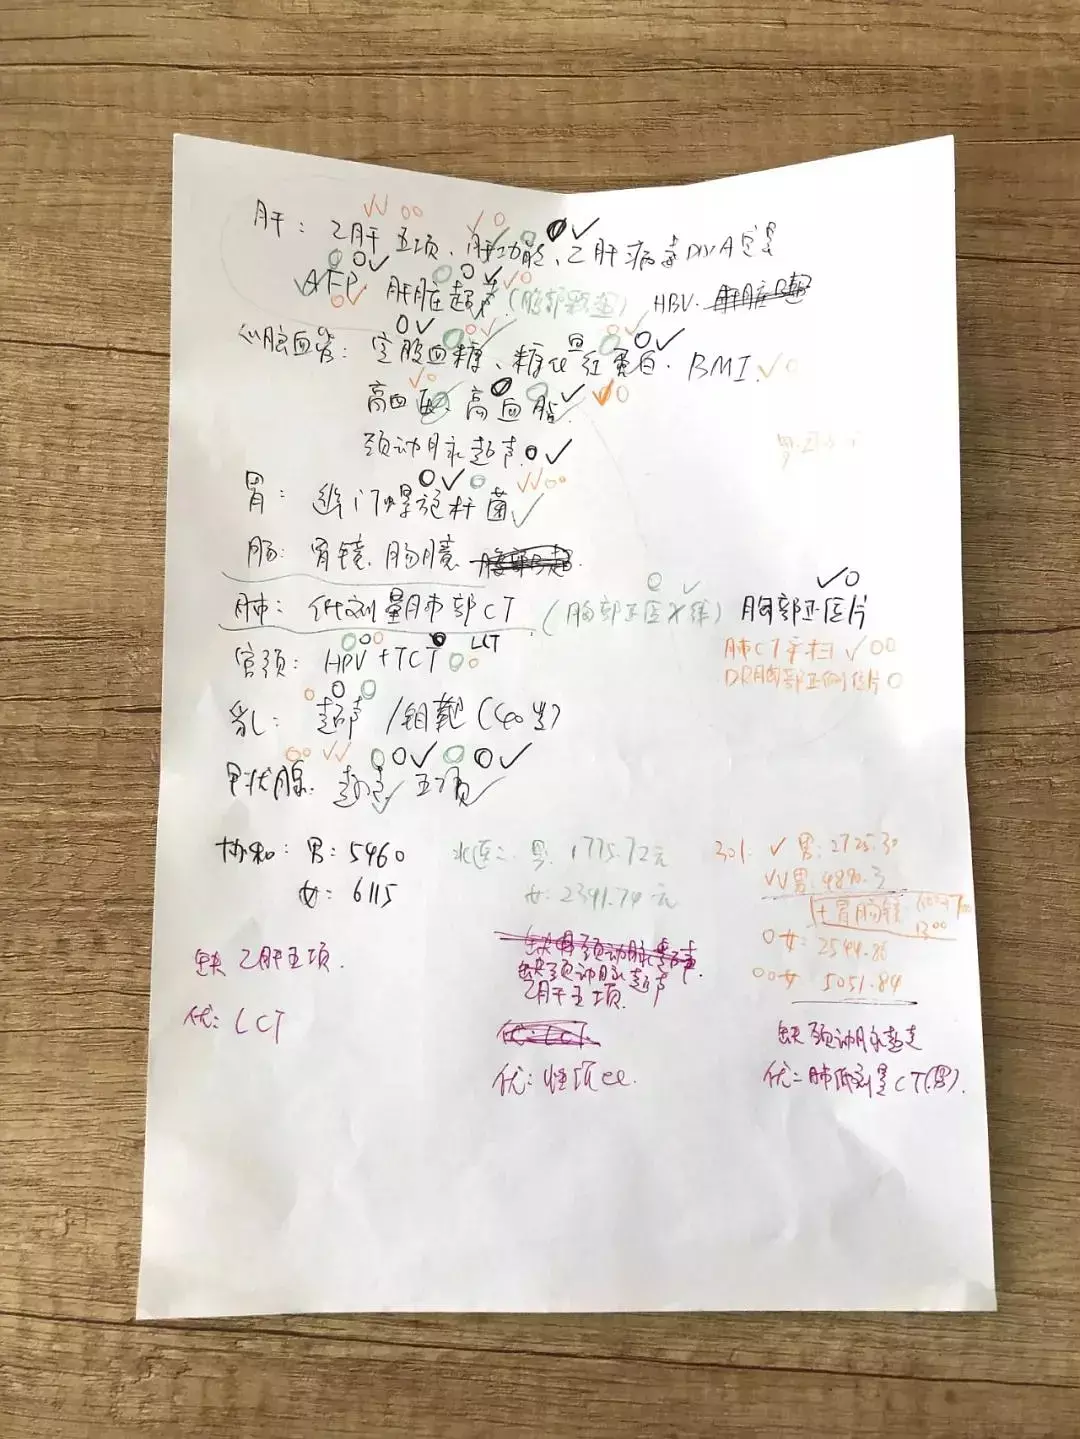 肝: 乙肝五项、肝功能、乙肝病毒DNA定量
AFP 肝脏超声 (腹部彩超) HBV.
心脑血管: 空腹血糖、糖化血红蛋白. BMI.
高血压、高血脂
颈动脉超声
胃: 幽门螺旋杆菌
肠: 胃镜. 肠镜.
肺: 低剂量肺部CT (胸部正位X线) 胸部正位片
肺CT平扫
DR胸部正侧位片
宫颈: HPV + TCT LCT
乳: 超声 /钼靶 (40岁)
甲状腺: 超声 五项
协和: 男: 5460
女: 6115
缺 乙肝五项.
优: LCT
男: 1775.72元
女: 2341.74元
缺颈动脉超声.
乙肝五项.
301. 男: 2725.30
男: 4890.3
+胃肠镜
1300
女: 2544.86
女: 5051.84
缺颈动脉超声
优: 肺低剂量CT(男).